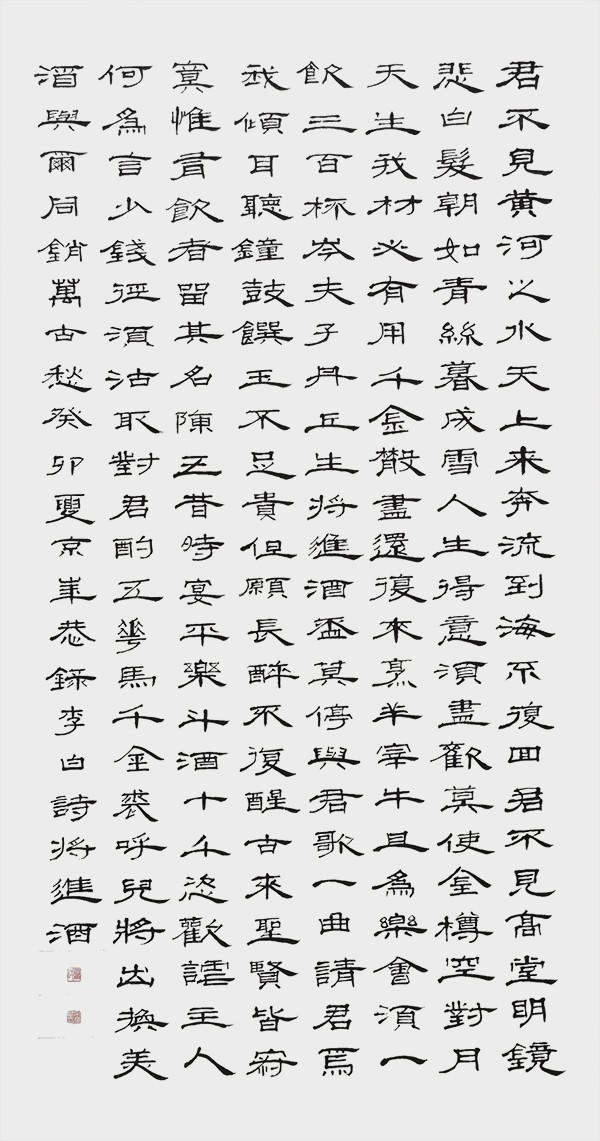 君不見黃河之水天上来奔流到海不復回君不見高堂明鏡
悲白髮朝如青絲暮成雪人生得意須盡歡莫使金樽空對月
天生我材必有用千金散盡還復來烹羊宰牛且為樂會須一
飲三百杯岑夫子丹丘生將進酒盃莫停與君歌一曲請君為
我傾耳聽鐘鼓饌玉不足貴但願長醉不復醒古來聖賢皆寂
寞惟有飲者留其名陳王昔時宴平樂斗酒十千恣歡謔主人
何為言少錢徑須沽取對君酌五花馬千金裘呼兒將出換美
酒與爾同銷萬古愁癸卯夏京恭錄李白詩將進酒